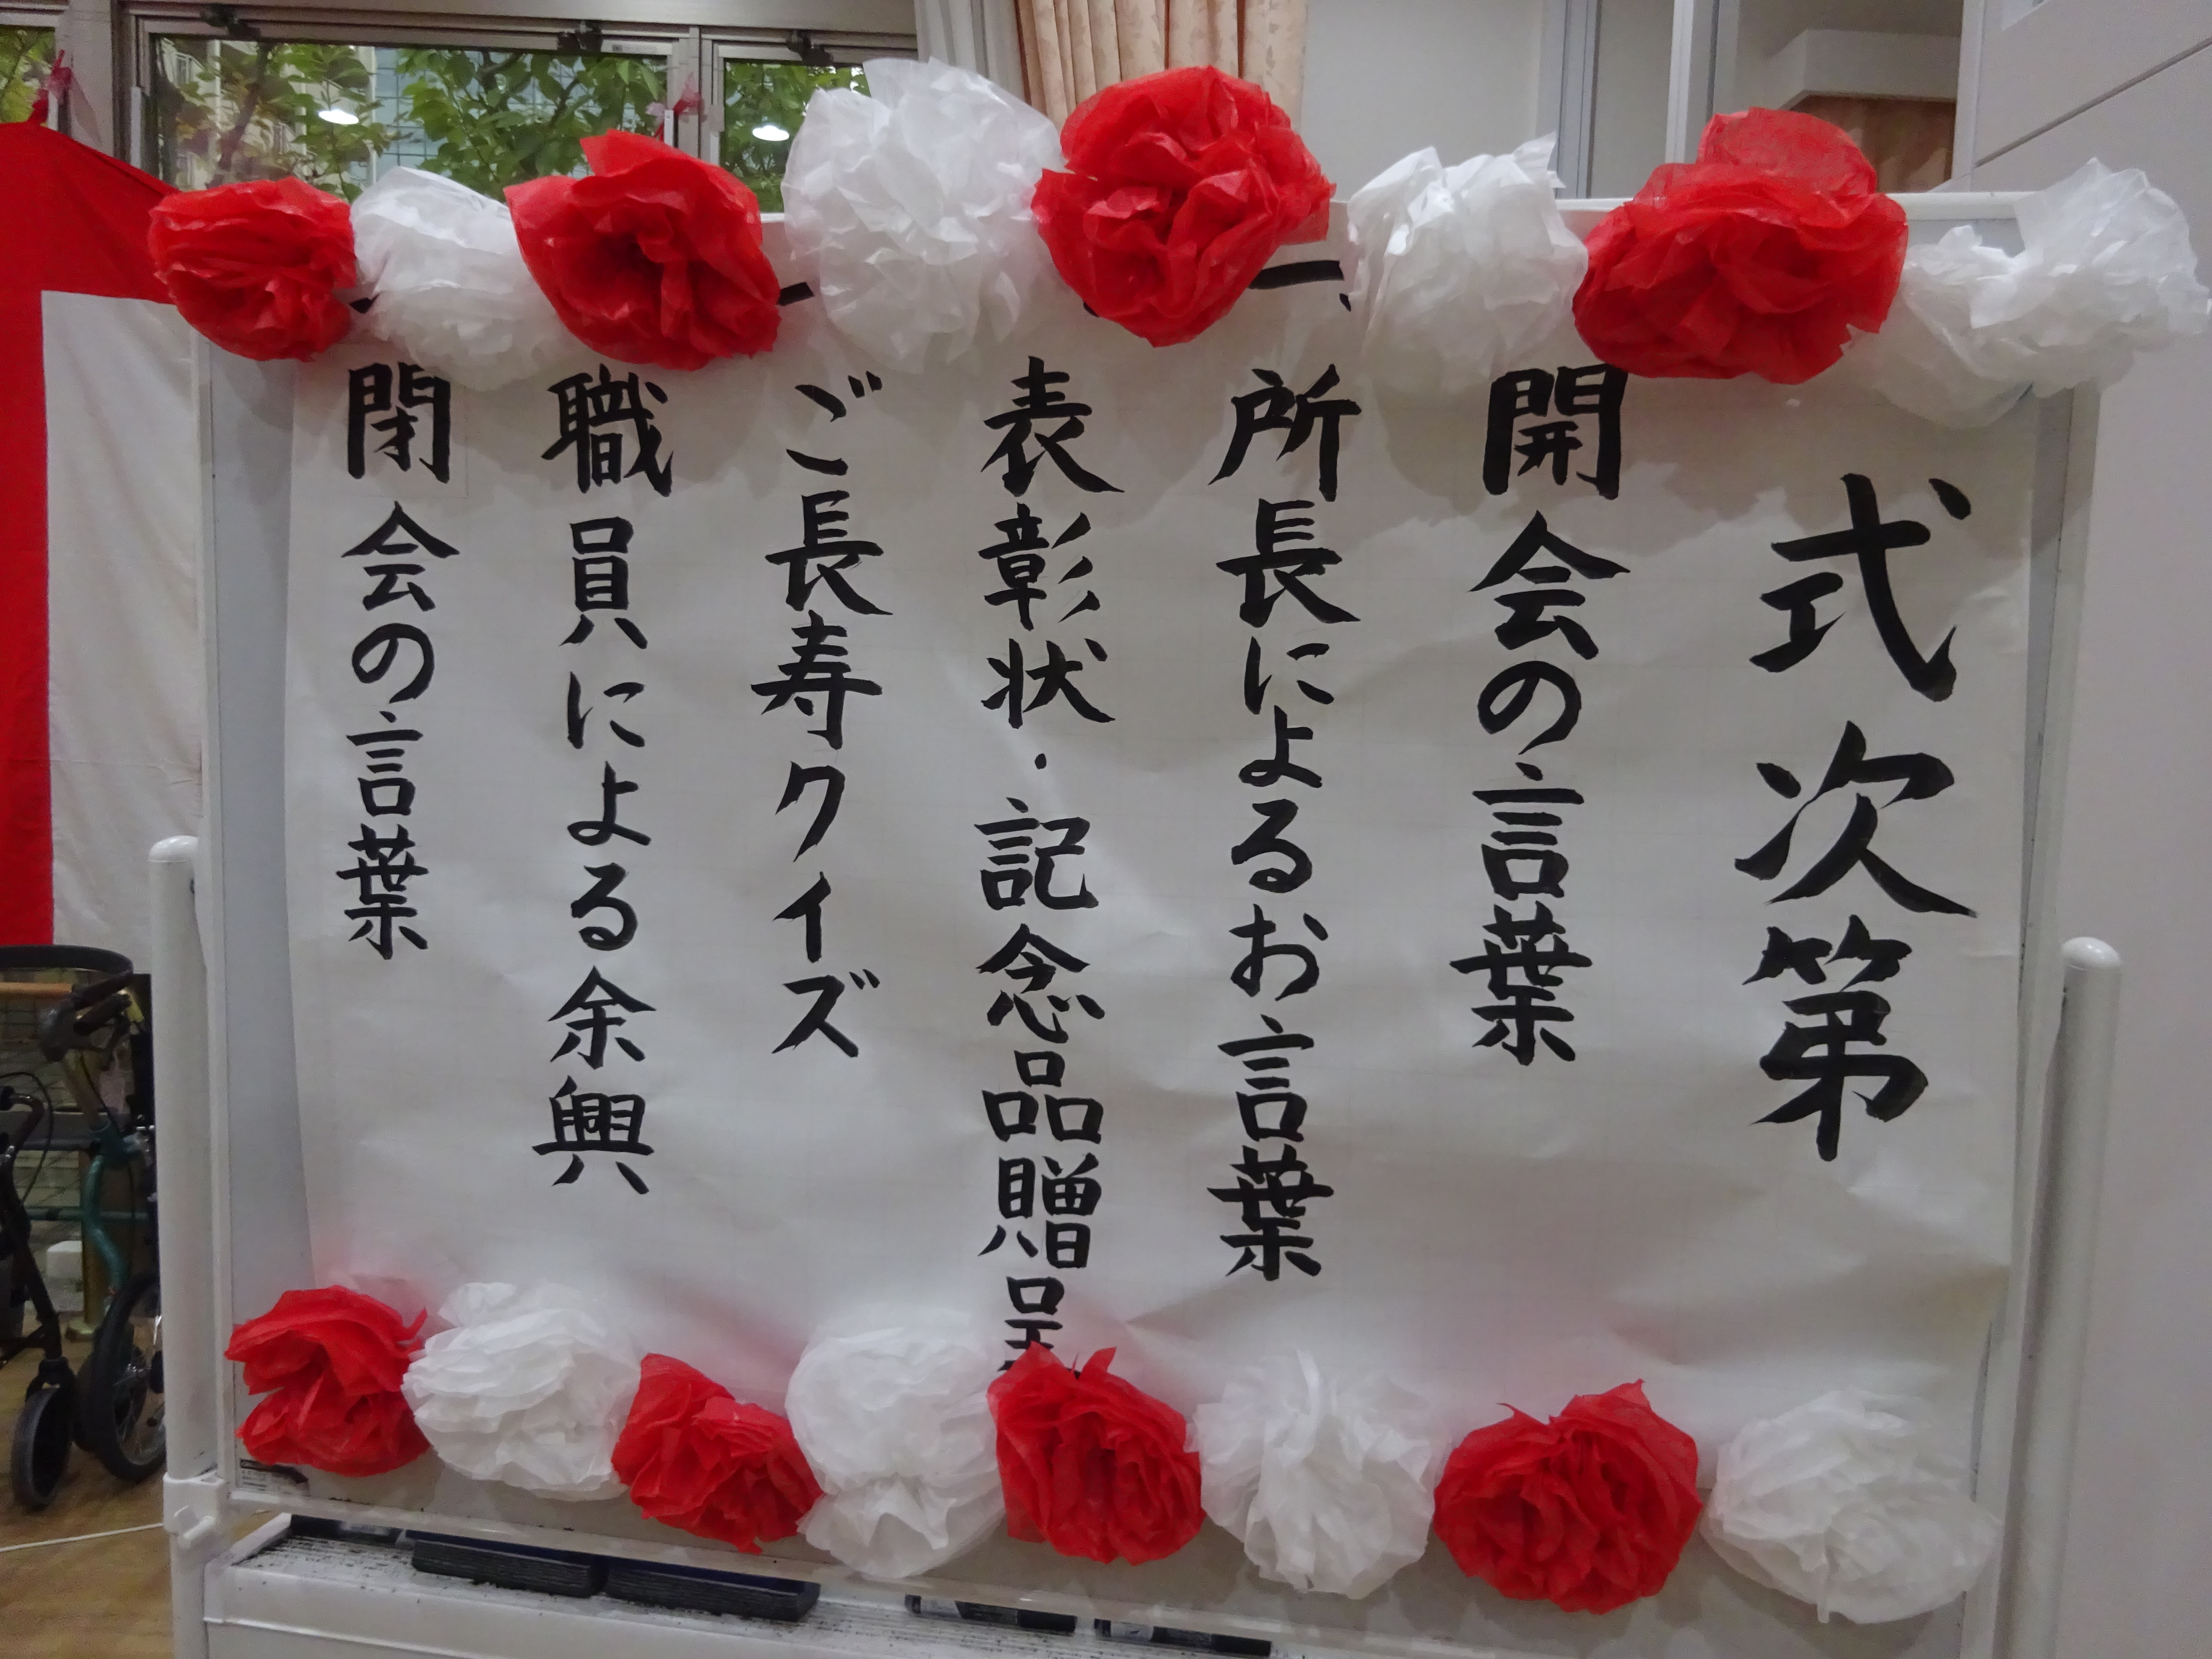 式次第
一、開会の言葉
一、所長によるお言葉
表彰状・記念品贈呈
ご長寿クイズ
職員による余興
閉会の言葉